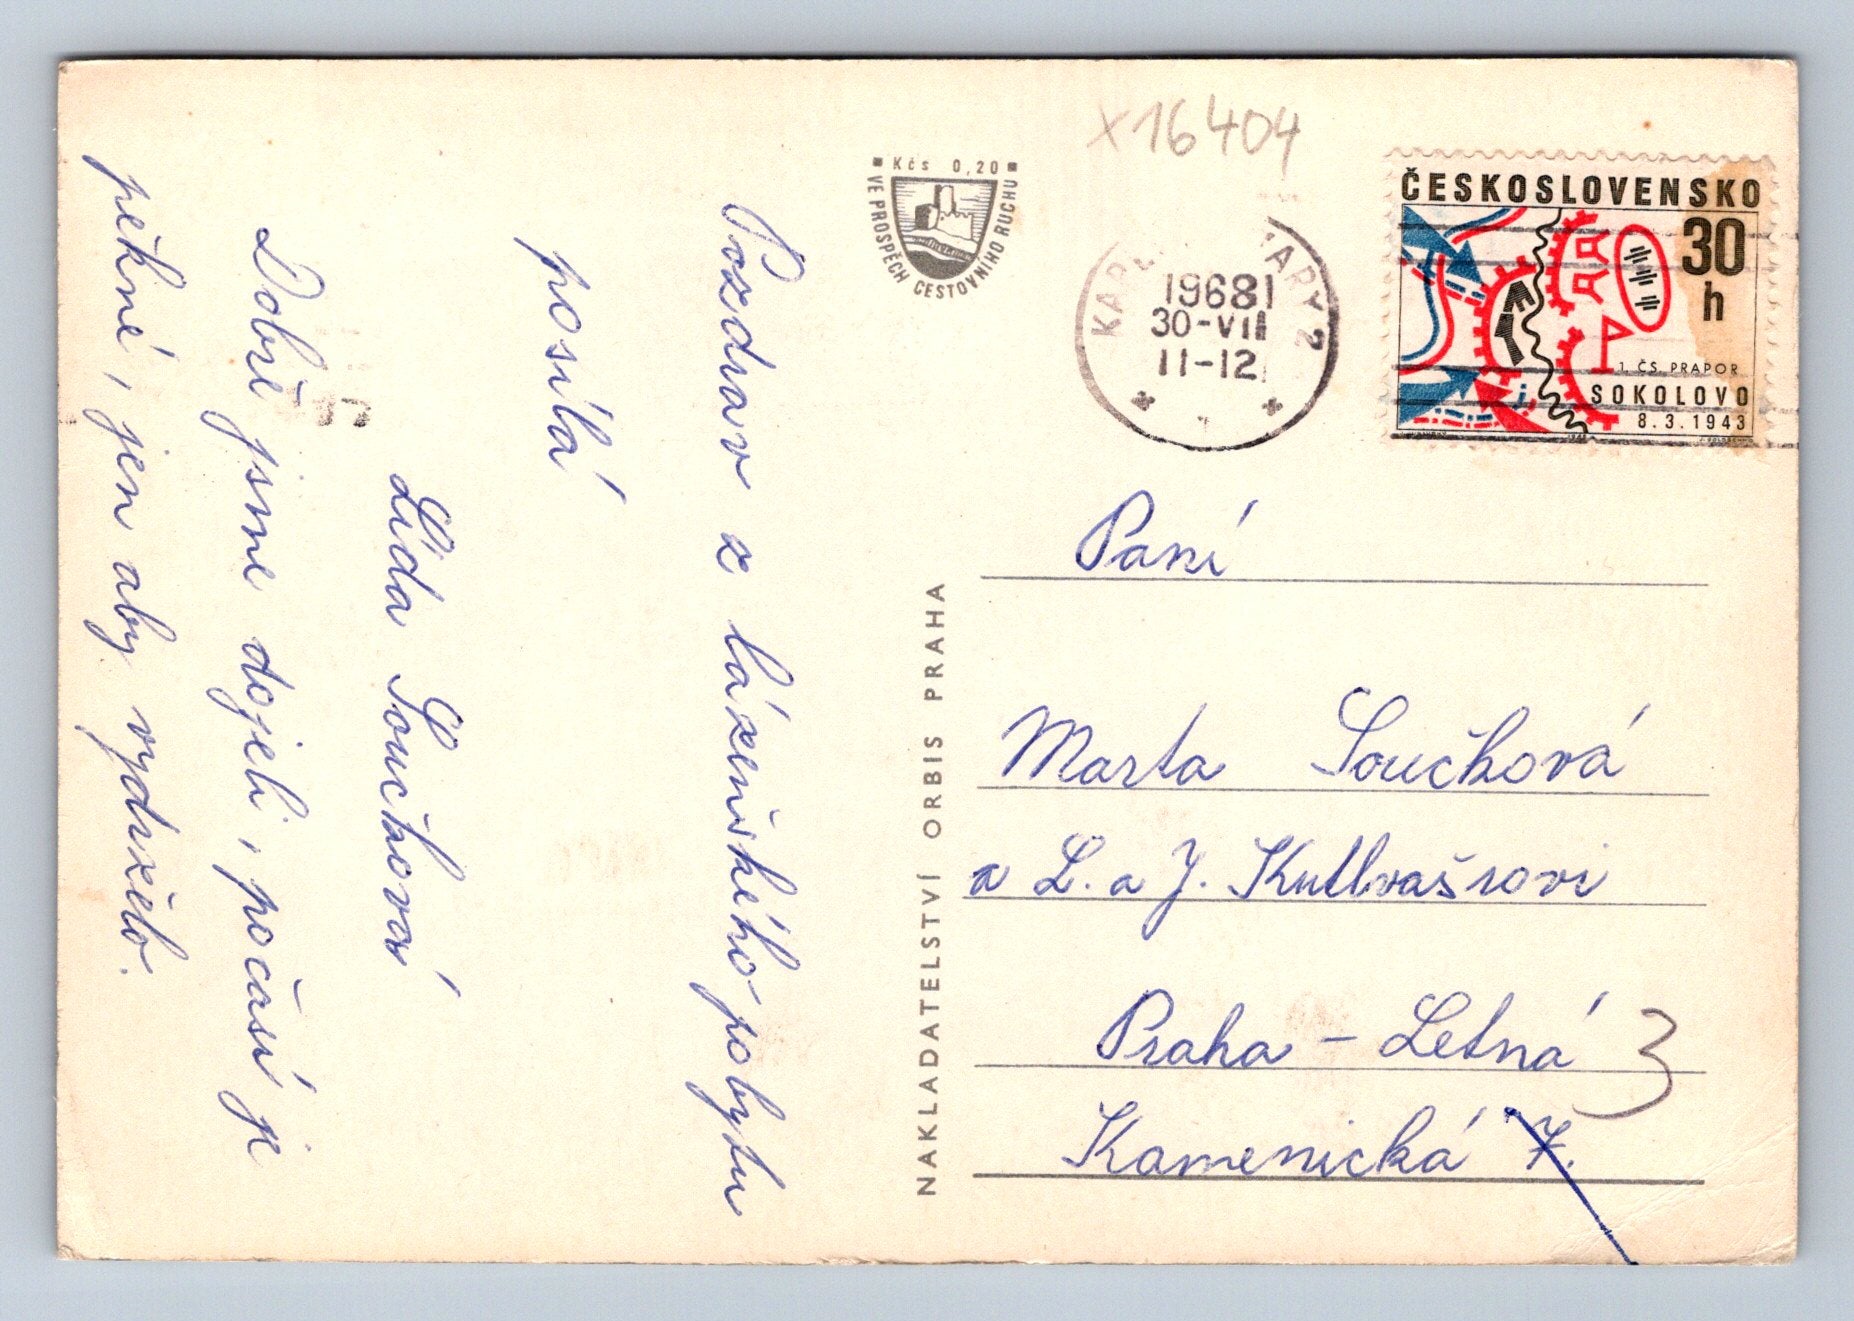 Pozdrav z lázeňského pobytu
posílá
Lída Součková
Dobře jsme dojeli, počasí je
pěkné, jen aby vydrželo.
Kčs 0,20
VE PROSPĚCH CESTOVNÍHO RUCHU
NAKLADATELSTVÍ ORBIS PRAHA
x16404
KARLOVY VARY 2
1968
30-VII
11-12
ČESKOSLOVENSKO
30
h
1. ČS. PRAPOR
SOKOLOVO
8.3.1943
Paní
Marta Součková
a L. a J. Kutlvašrovi
Praha - Letná
3
Kamenická 7.